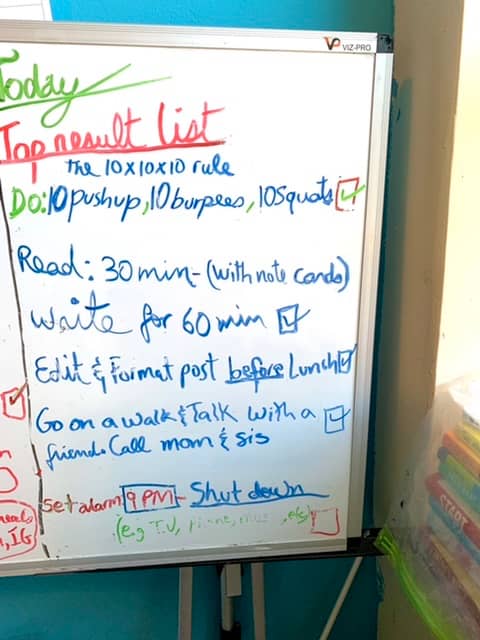 VIZ-PRO
Today
Top result list
The 10x10x10 rule
Do: 10 pushup, 10 burpees, 10 Squats
Read: 30 min - (with note cards)
Write for 60 min
Edit & Format post before Lunch
Go on a walk & Talk with a
friend. Call mom & sis
Set alarm 9 PM - Shut down
(e.g T.V, phone,
, IG
START